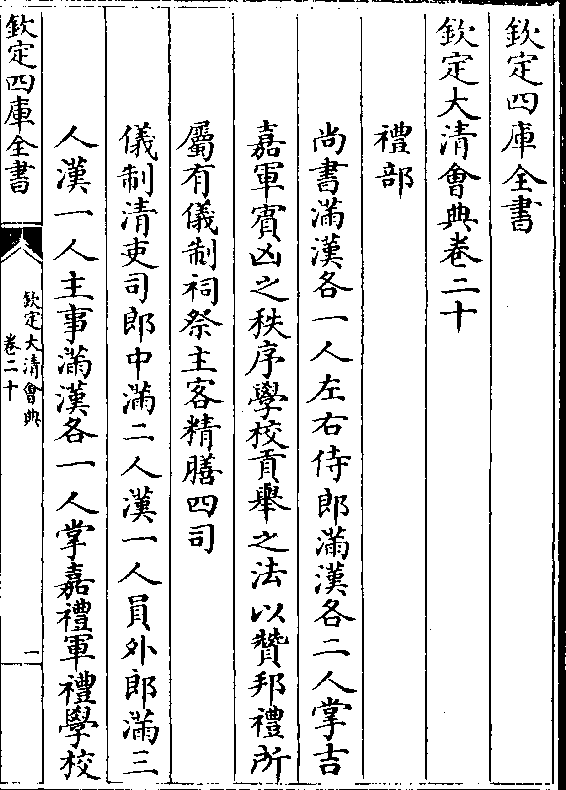 欽定四庫全書
欽定大清會典卷二十
禮部
尚書滿漢各一人左右侍郎滿漢各二人掌吉
嘉軍賓凶之秩序學校貢舉之法以贊邦禮所
屬有儀制祠祭主客精膳四司
儀制清吏司郎中滿二人漢一人員外郎滿三
人漢一人主事滿漢各一人掌嘉禮軍禮學校
欽定四庫全書
欽定大清會典
卷二十
一